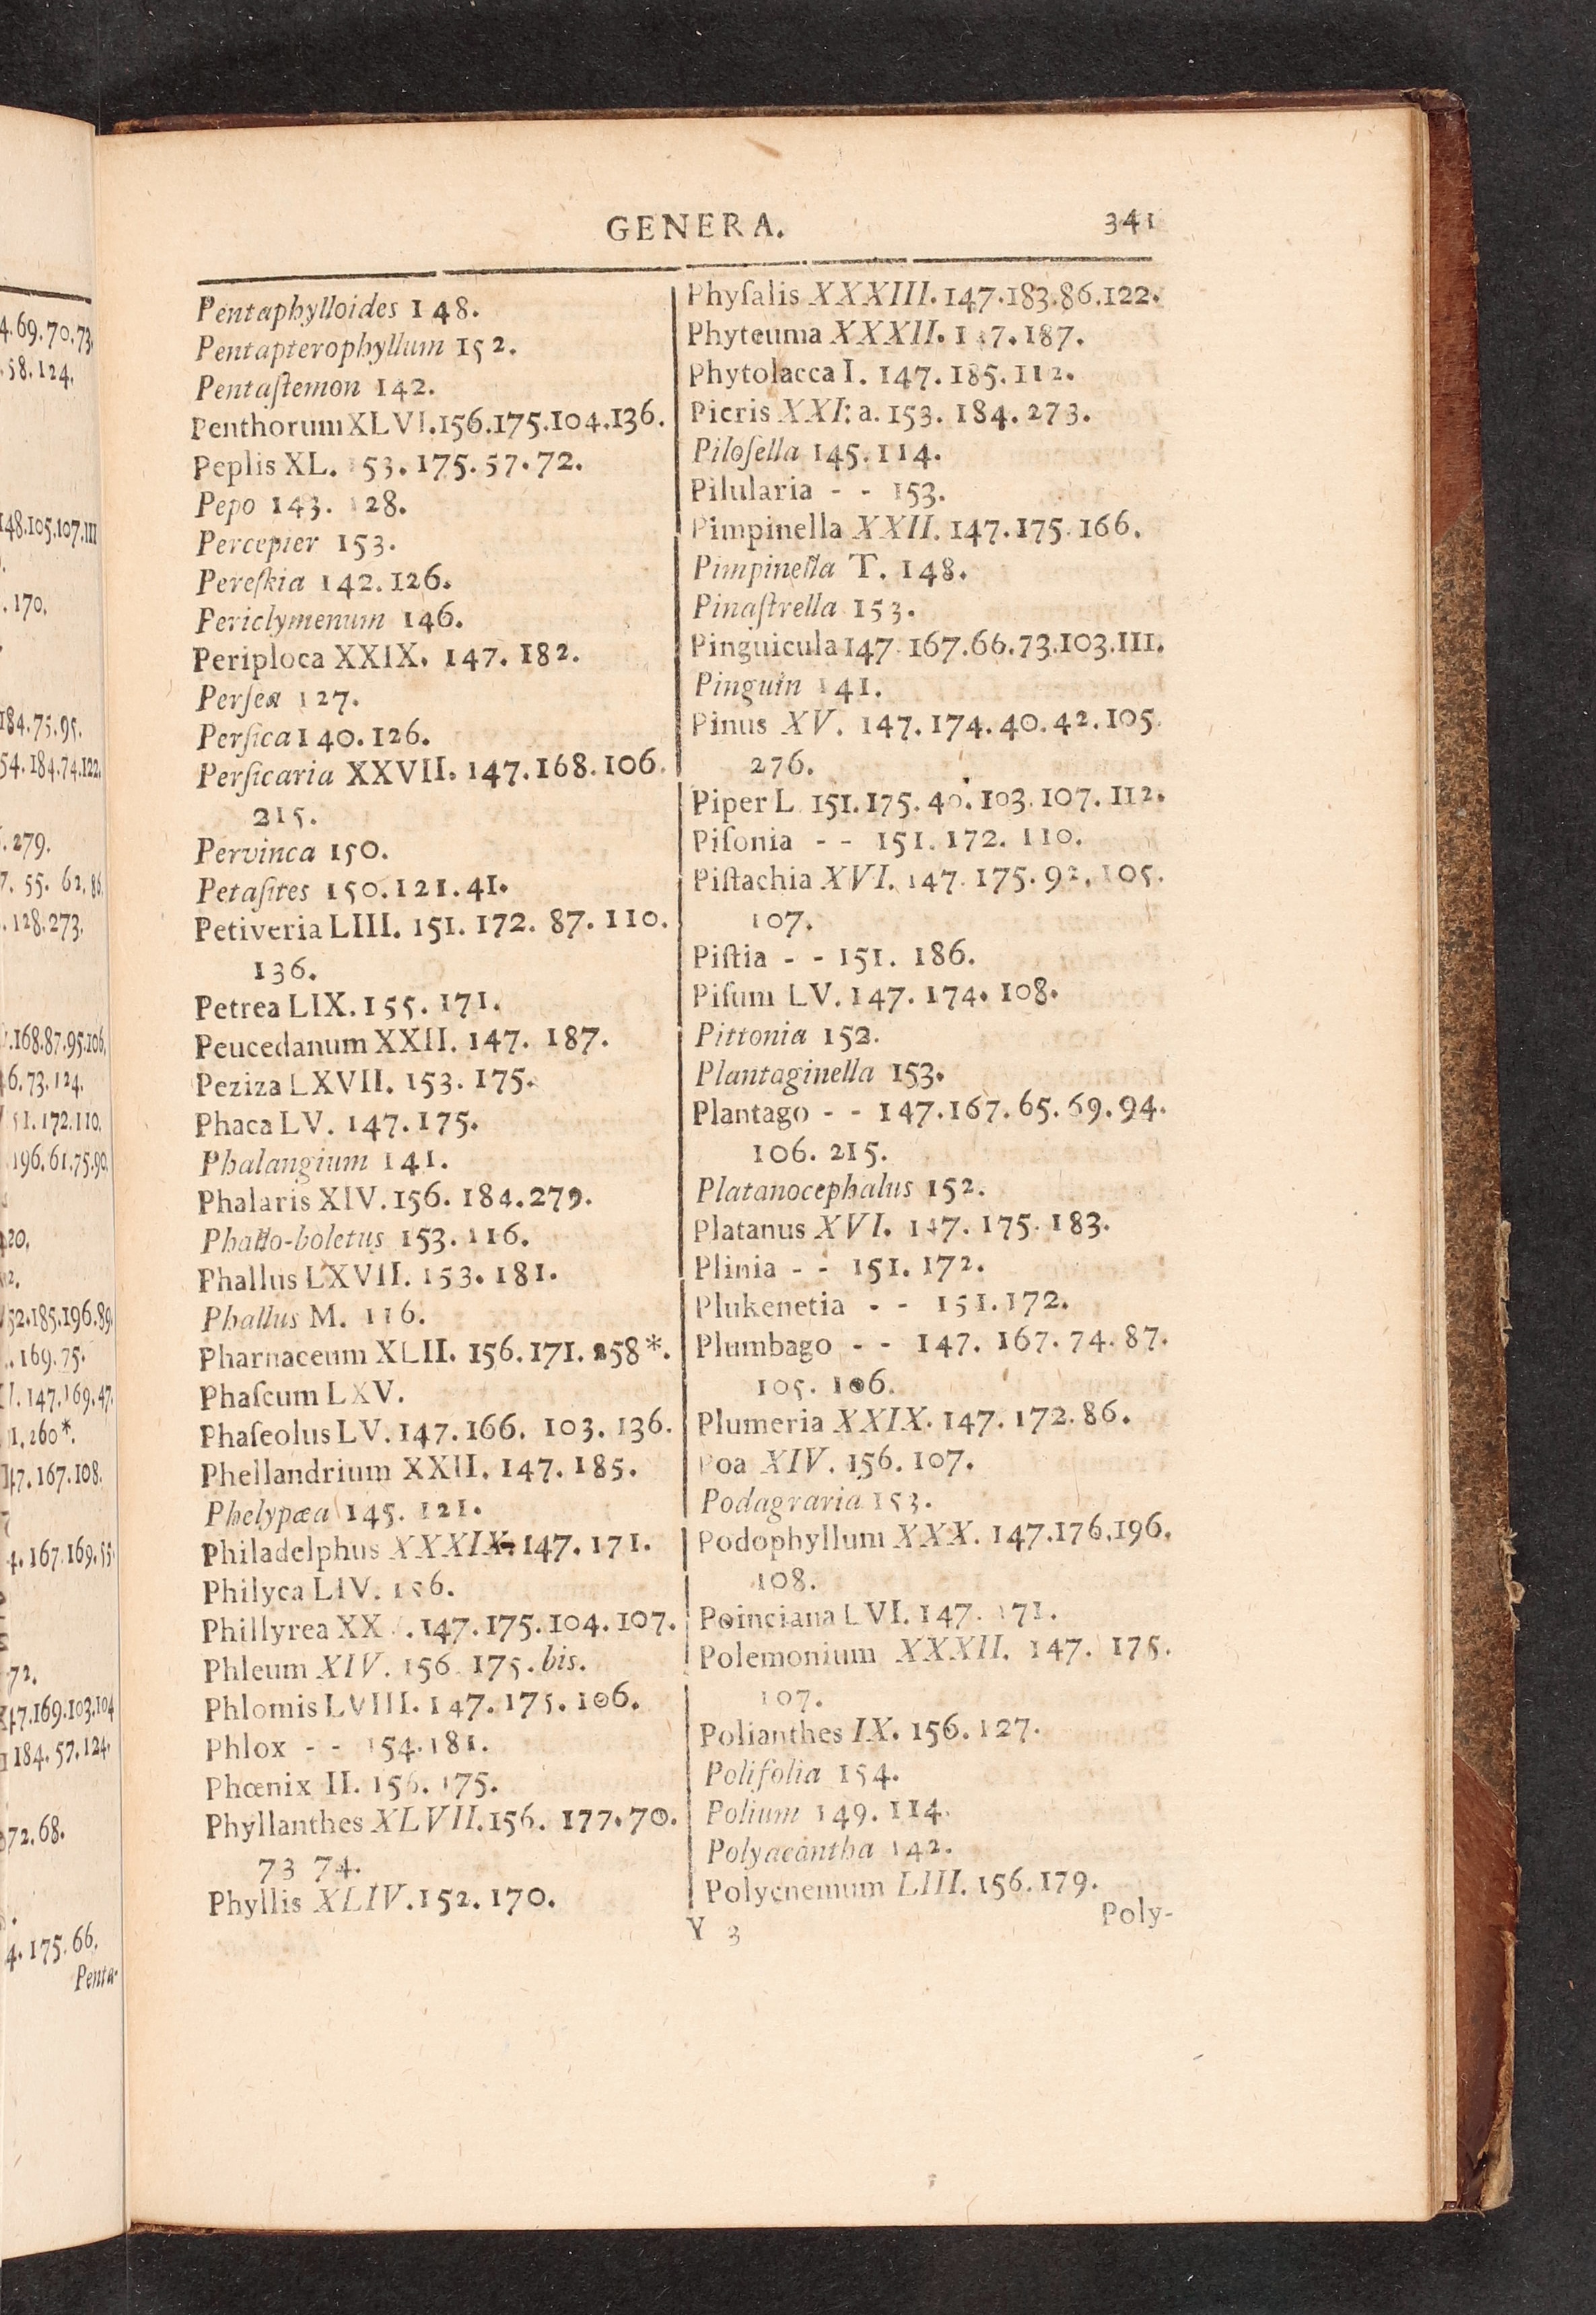 GENERA. 341
Pentaphylloides 148.
Pentapterophyllum 152.
Pentaſtemon 142.
Penthorum XLVI. 156. 175. 104. 136.
Peplis XL. 153. 175. 57. 72.
Pepo 143. 128.
Percepier 153.
Pereſkia 142. 126.
Periclymenum 146.
Periploca XXIX. 147. 182.
Perſea 127.
Perſica 140. 126.
Perſicaria XXVII. 147. 168. 106.
215.
Pervinca 150.
Petaſites 150. 121. 41.
Petiveria LIII. 151. 172. 87. 110.
136.
Petrea LIX. 155. 171.
Peucedanum XXII. 147. 187.
Peziza LXVII. 153. 175.
Phaca LV. 147. 175.
Phalangium 141.
Phalaris XIV. 156. 184. 279.
Phallo-boletus 153. 116.
Phallus LXVII. 153. 181.
Phallus M. 116.
Pharnaceum XLII. 156. 171. 258*.
Phaſcum LXV.
Phaſeolus LV. 147. 166. 103. 136.
Phellandrium XXII. 147. 185.
Phelypæa 145. 121.
Philadelphus XXXIX. 147. 171.
Philyca LIV. 156.
Phillyrea 147. 175. 104. 107.
Phleum XIV. 156. 175. bis.
Phlomis LVIII. 147. 175. 106.
Phlox - - 154. 181.
Phœnix II. 156. 175.
Phyllanthes XLVII. 156. 177. 70.
73 74.
Phyllis XLIV. 152. 170.
Phyſalis XXXIII. 147. 183. 86. 122.
Phyteuma XXXII. 147. 187.
Phytolacca I. 147. 185. 112.
Picris XXI: a. 153. 184. 273.
Piloſella 145. 114.
Pilularia - - 153.
Pimpinella XXII. 147. 175. 166.
Pimpinella T. 148.
Pinaſtrella 153.
Pinguicula 147. 167. 66. 73. 103. 111.
Pinguin 141.
Pinus XV. 147. 174. 40. 42. 105.
276.
Piper L. 151. 175. 40. 103. 107. 112.
Piſonia - - 151. 172. 110.
Piſtachia XVI. 147. 175. 92. 105.
107.
Piſtia - - 151. 186.
Piſum LV. 147. 174. 108.
Pittonia 152.
Plantaginella 153.
Plantago - - 147. 167. 65. 69. 94.
106. 215.
Platanocephalus 152.
Platanus XVI. 147. 175. 183.
Plinia - - 151. 172.
Plukenetia - - 151. 172.
Plumbago - - 147. 167. 74. 87.
105. 106.
Plumeria XXIX. 147. 172. 86.
Poa XIV. 156. 107.
Podagraria 153.
Podophyllum XXX. 147. 176. 196.
108.
Poinciana LVI. 147. 171.
Polemonium XXXII. 147. 175.
107.
Polianthes IX. 156. 127.
Polifolia 154.
Polium 149. 114.
Polyacantha 142.
Polycnemum LIII. 156. 179.
Y 3 Poly-